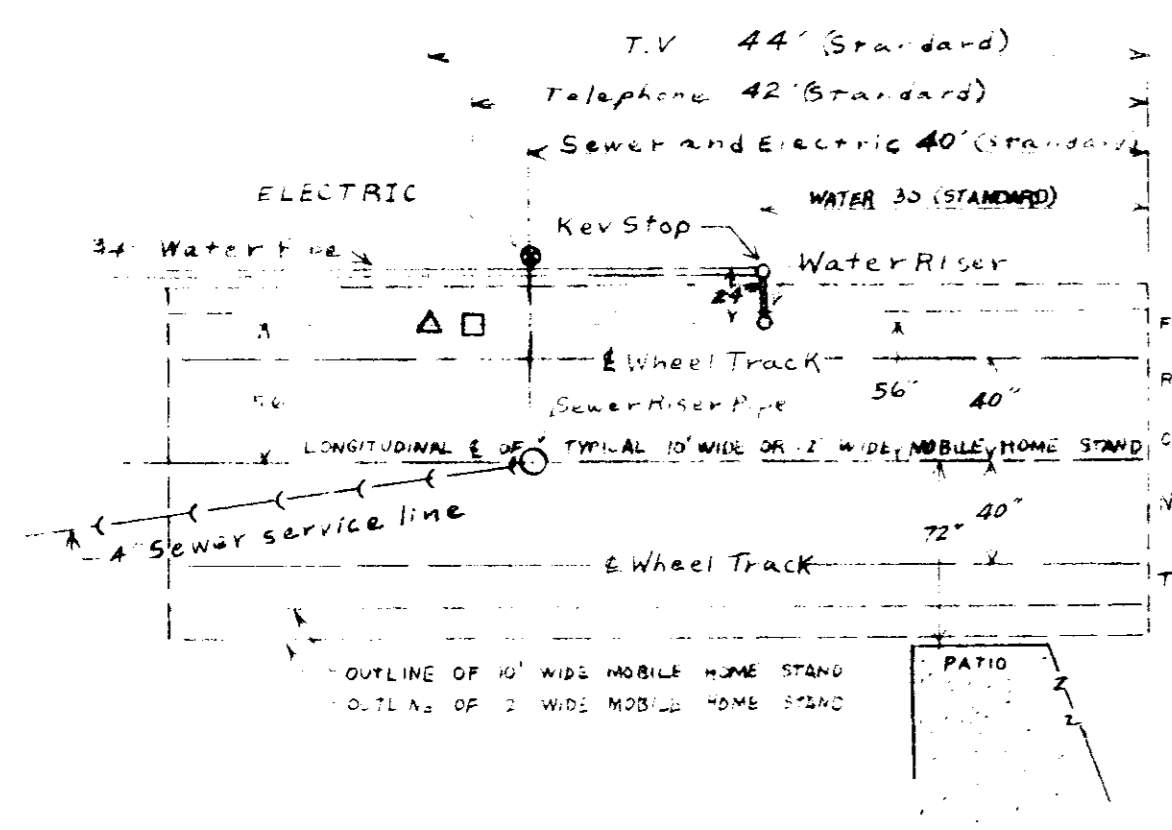 T.V 44' (Standard)
Telephone 42' (Standard)
Sewer and Electric 40' (Standard)
ELECTRIC
WATER 30 (STANDARD)
Key Stop
3/4 Water Pipe
Water Riser
24"
℄ Wheel Track
56"
40"
56
Sewer Riser Pipe
LONGITUDINAL ℄ OF TYPICAL 10' WIDE OR 12' WIDE MOBILE HOME STAND
FRONT
4" Sewer service line
72"
40"
℄ Wheel Track
OUTLINE OF 10' WIDE MOBILE HOME STAND
OUTLINE OF 12' WIDE MOBILE HOME STAND
PATIO